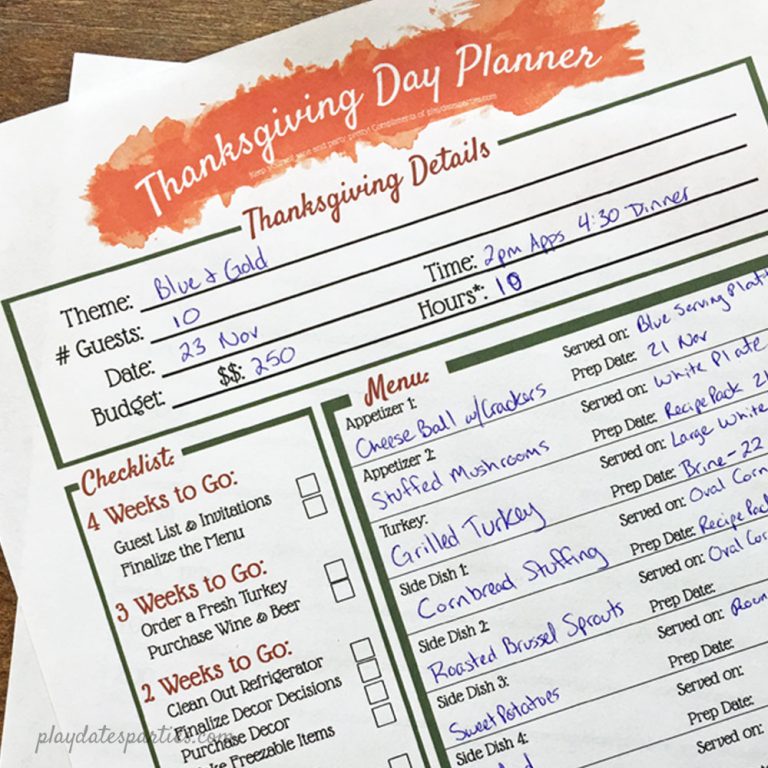 Thanksgiving Day Planner
Keep your wit wine and party pretty! Compliments of playdatesparties.com
Thanksgiving Details
Theme: Blue & Gold
# Guests: 10
Time: 2pm Apps 4:30 Dinner
Date: 23 Nov
Hours*: 10
Budget: $$: 250
Checklist:
4 Weeks to Go:
Guest List & Invitations
Finalize the Menu
3 Weeks to Go:
Order a Fresh Turkey
Purchase Wine & Beer
2 Weeks to Go:
Clean Out Refrigerator
Finalize Decor Decisions
Purchase Decor
Freezable Items
Menu:
Appetizer 1:
Served on: Blue Serving
Cheese Ball w/Crackers
Prep Date: 21 Nov
Appetizer 2:
Served on: White Plate
Stuffed Mushrooms
Prep Date: Recipe Pack 21
Turkey:
Served on: Large White
Grilled Turkey
Prep Date: Brine - 22
Side Dish 1:
Served on: Oval
Cornbread Stuffing
Prep Date: Recipe Pack
Side Dish 2:
Served on: Oval
Roasted Brussel Sprouts
Prep Date:
Side Dish 3:
Served on:
Sweet Potatoes
Prep Date:
Side Dish 4:
Served on:
Prep Date:
playdatesparties.com